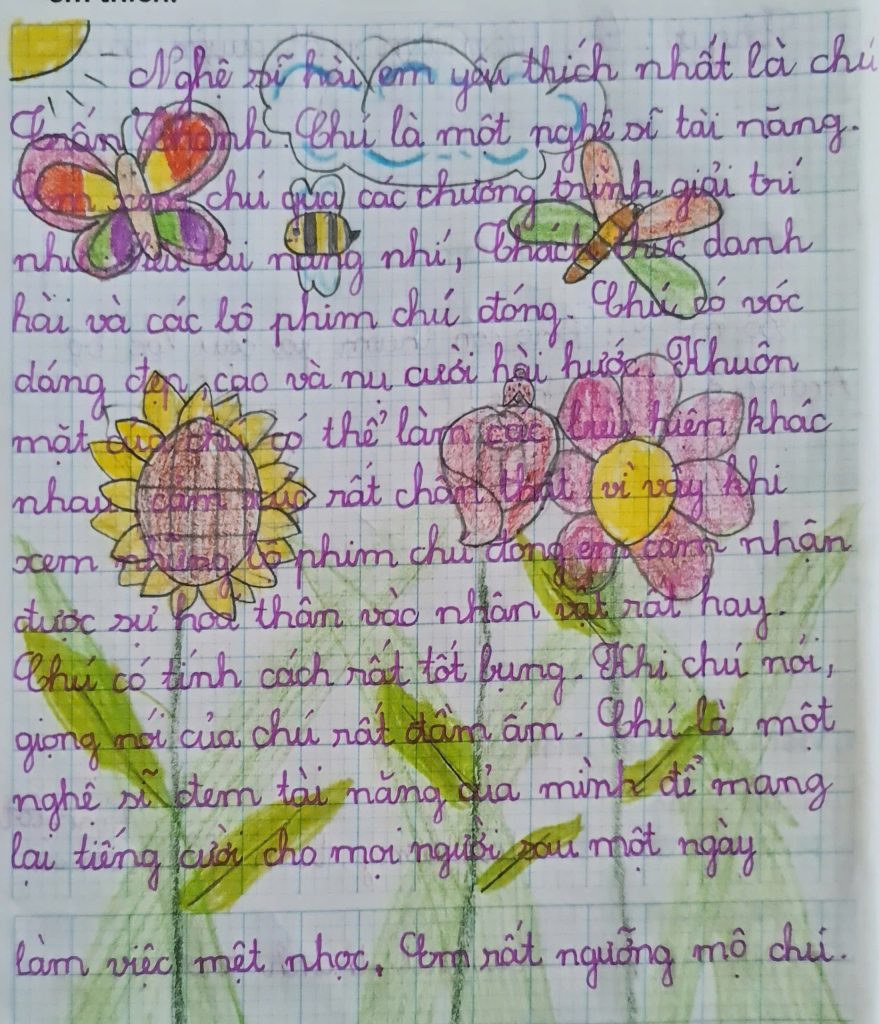 em thích.
Nghệ sĩ hài em yêu thích nhất là chú
Trấn Thành. Chú là một nghệ sĩ tài năng.
Em xem chú qua các chương trình giải trí
như: Siêu tài năng nhí, Thách thức danh
hài và các bộ phim chú đóng. Chú có vóc
dáng đẹp, cao và nụ cười hài hước. Khuôn
mặt của chú có thể làm các biểu hiện khác
nhau, cảm xúc rất chân thật, vì vậy khi
xem những bộ phim chú đóng em cảm nhận
được sự hoá thân vào nhân vật rất hay.
Chú có tính cách rất tốt bụng. Khi chú nói,
giọng nói của chú rất đầm ấm. Chú là một
nghệ sĩ đem tài năng của mình để mang
lại tiếng cười cho mọi người sau một ngày
làm việc mệt nhọc. Em rất ngưỡng mộ chú.